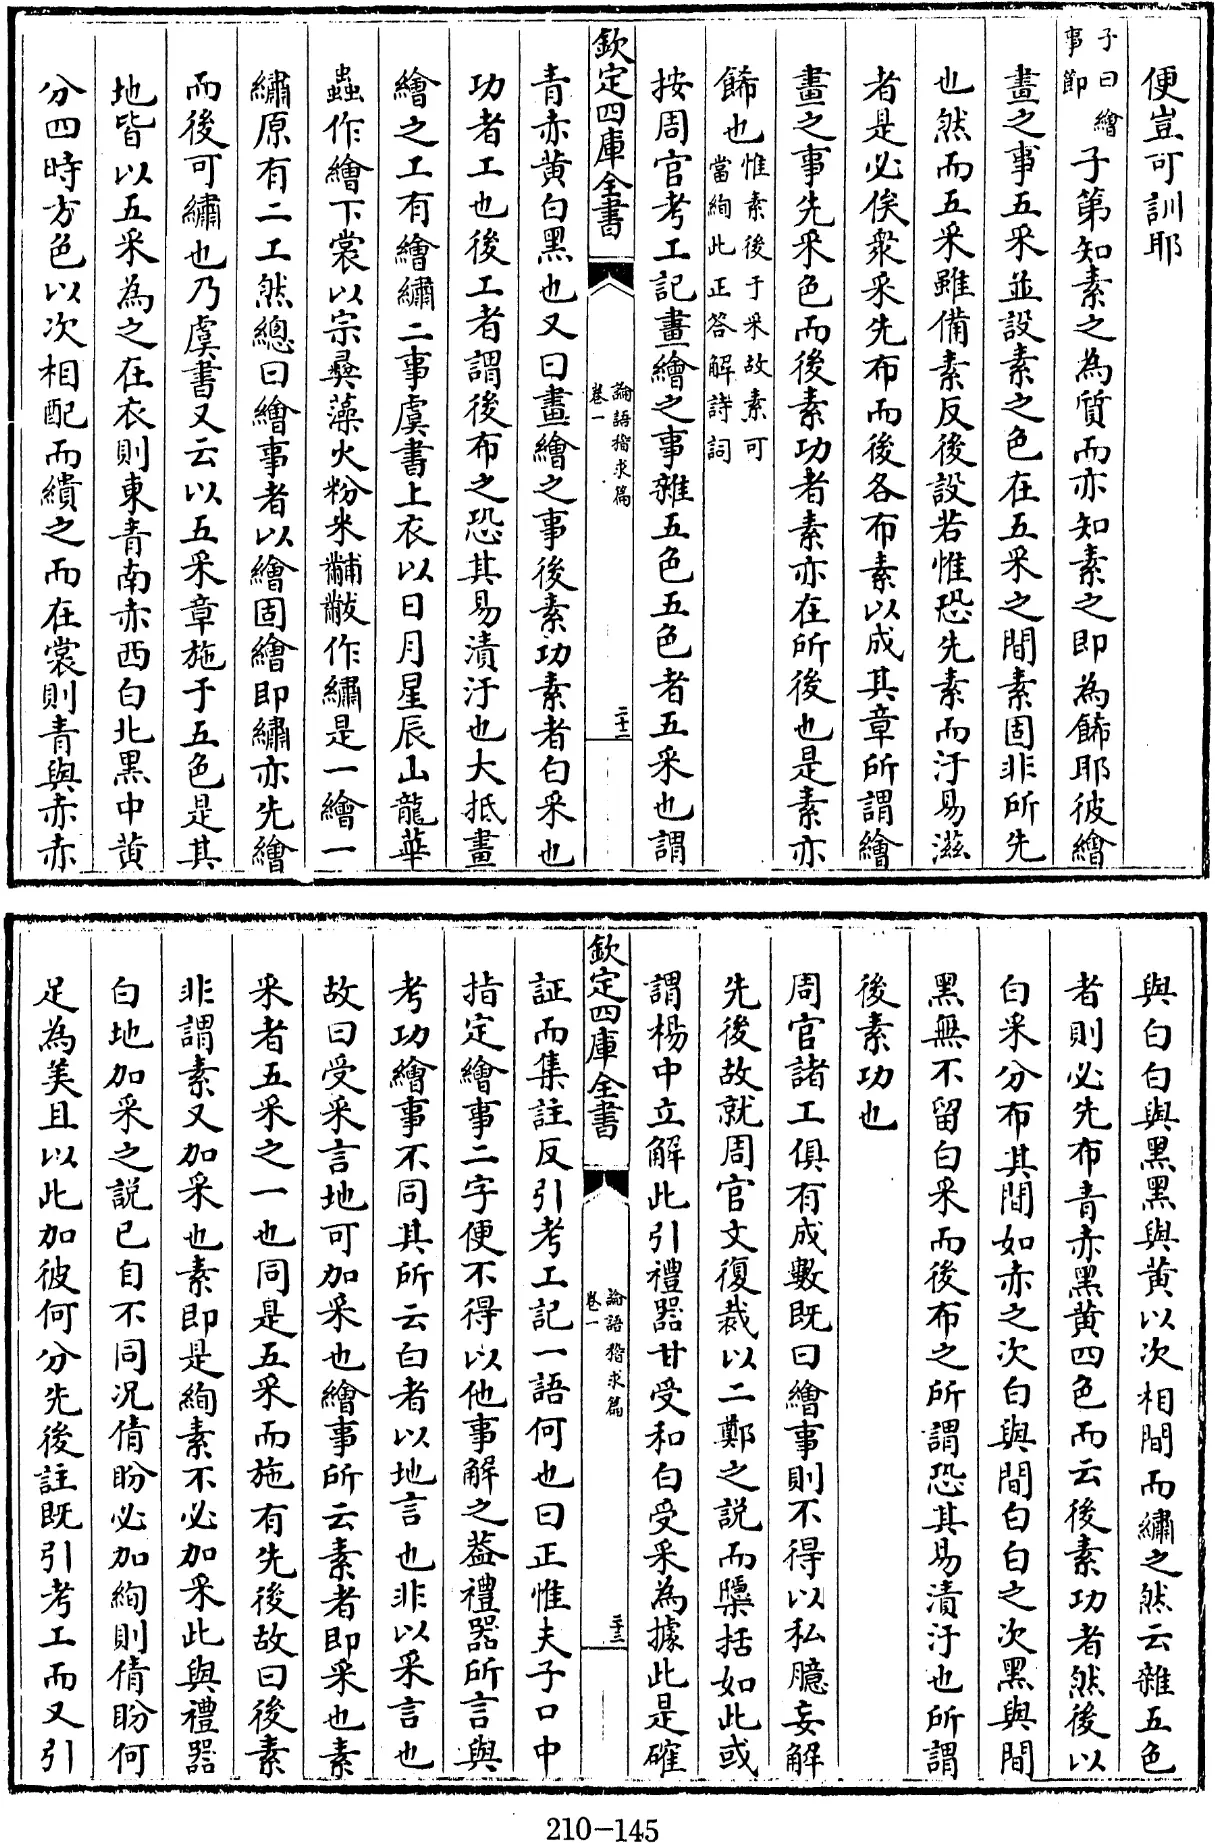 便豈可訓耶
子曰繪
事節
子第知素之為質而亦知素之即為餙耶彼繪
畫之事五采並設素之色在五采之間素固非所先
也然而五采雖備素反後設若惟恐先素而汙易滋
者是必俟衆采先布而後各布素以成其章所謂繪
畫之事先采色而後素功者素亦在所後也是素亦
餙也
惟素後于采故素可
當絢此正答解詩詞
按周官考工記畫繪之事雜五色五色者五采也謂
欽定四庫全書
論語稽求篇
卷一
二十二
青赤黄白黑也又曰畫繪之事後素功素者白采也
功者工也後工者謂後布之恐其易漬汙也大抵畫
繪之工有繪繡二事虞書上衣以日月星辰山龍華
蟲作繪下裳以宗彛藻火粉米黼黻作繡是一繪一
繡原有二工然總曰繪事者以繪固繪即繡亦先繪
而後可繡也乃虞書又云以五采章施于五色是其
地皆以五采為之在衣則東青南赤西白北黑中黄
分四時方色以次相配而繢之而在裳則青與赤赤
與白白與黑黑與黄以次相間而繡之然云雜五色
者則必先布青赤黑黄四色而云後素功者然後以
白采分布其間如赤之次白與間白白之次黑與間
黑無不留白采而後布之所謂恐其易漬汙也所謂
後素功也
周官諸工俱有成數既曰繪事則不得以私臆妄解
先後故就周官文復裁以二鄭之説而檃括如此或
謂楊中立解此引禮器甘受和白受采為據此是確
欽定四庫全書
論語稽求篇
卷一
二十三
証而集註反引考工記一語何也曰正惟夫子口中
指定繪事二字便不得以他事解之葢禮器所言與
考功繪事不同其所云白者以地言也非以采言也
故曰受采言地可加采也繪事所云素者即采也素
采者五采之一也同是五采而施有先後故曰後素
非謂素又加采也素即是絢素不必加采此與禮器
白地加采之説已自不同况倩盼必加絢則倩盼何
足為美且以此加彼何分先後註既引考工而又引
210-145